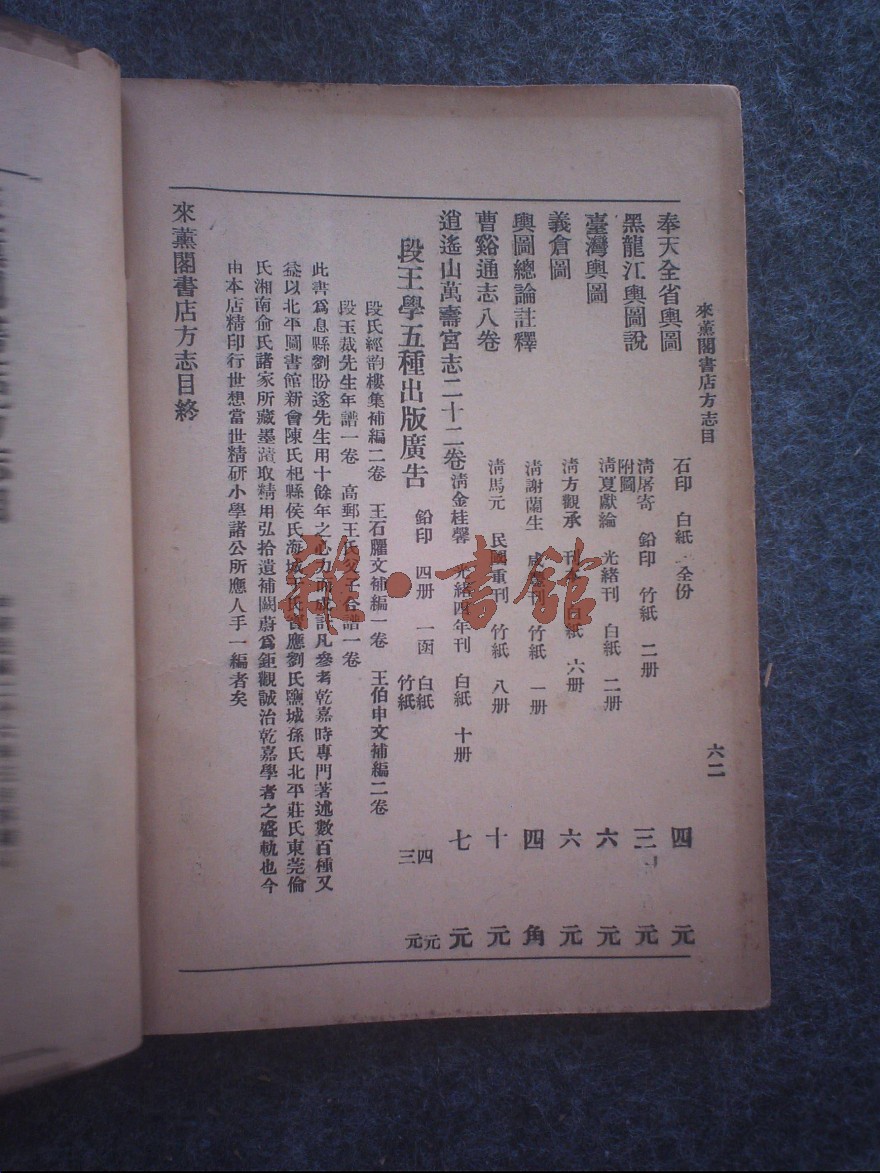 來薰閣書店方志目
六二
奉天全省輿圖 石印 白紙 全份 四元
黑龍江輿圖說 附圖 清屠寄 鉛印 竹紙 二册 三元
臺灣輿圖 清夏獻綸 光緒刊 白紙 二册 六元
義倉圖 清方觀承 刊 白紙 六册 六元
輿圖總論註釋 清謝蘭生 刊 竹紙 一册 四角
曹谿通志八卷 清馬元 民國重刊 竹紙 八册 十元
逍遙山萬壽宮志二十二卷 清金桂馨 光緒四年刊 白紙 十册 七元
段王學五種出版廣告 鉛印 四册 一函 白紙 四元 竹紙 三元
段氏經韵樓集補編二卷 王石臞文補編一卷 王伯申文補編二卷
段玉裁先生年譜一卷 高郵王氏父子合譜一卷
此書爲息縣劉盼遂先生用十餘年之心力而成計凡參考乾嘉時專門著述數百種又
益以北平圖書館新會陳氏杞縣侯氏海城于氏寶應劉氏鹽城孫氏北平莊氏東莞倫
氏湘南俞氏諸家所藏墨蹟取精用弘拾遺補闕蔚爲鉅觀誠治乾嘉學者之盛軌也今
由本店精印行世想當世精研小學諸公所應人手一編者矣
來薰閣書店方志目終
雜·書館